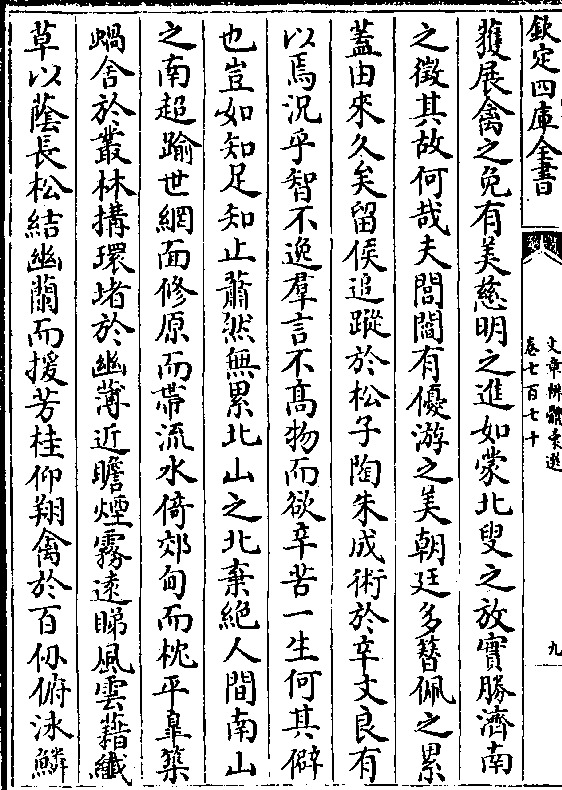 欽定四庫全書
文章辨體彙選
卷七百七十
九
獲展禽之免有美慈明之進如蒙北叟之放實勝濟南
之徵其故何哉夫閭閻有優游之美朝廷多簪佩之累
蓋由來久矣留侯追蹤於松子陶朱成術於辛文良有
以焉況乎智不逸羣言不髙物而欲辛苦一生何其僻
也豈如知足知止蕭然無累北山之北棄絶人間南山
之南超踰世網面修原而帶流水倚郊甸而枕平臯築
蝸舍於叢林搆環堵於幽薄近瞻煙霧遠睇風雲藉纖
草以蔭長松結幽蘭而援芳桂仰翔禽於百仞俯泳鱗